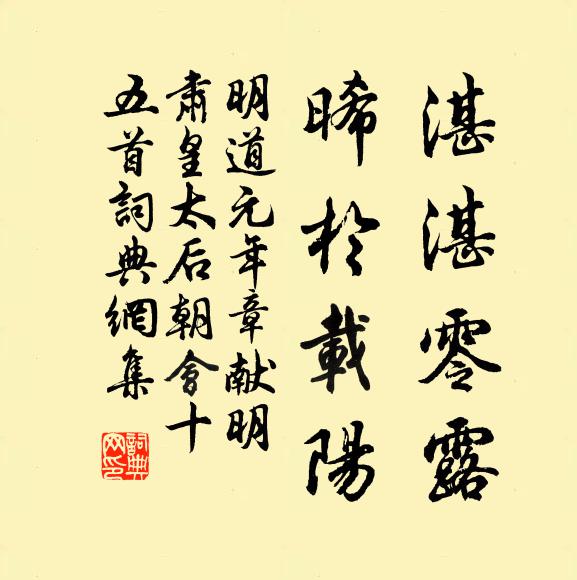 湛湛零露
晞於載陽
明道元年章献明
肅皇太后朝會十
五首詞典網集
詞典
网印